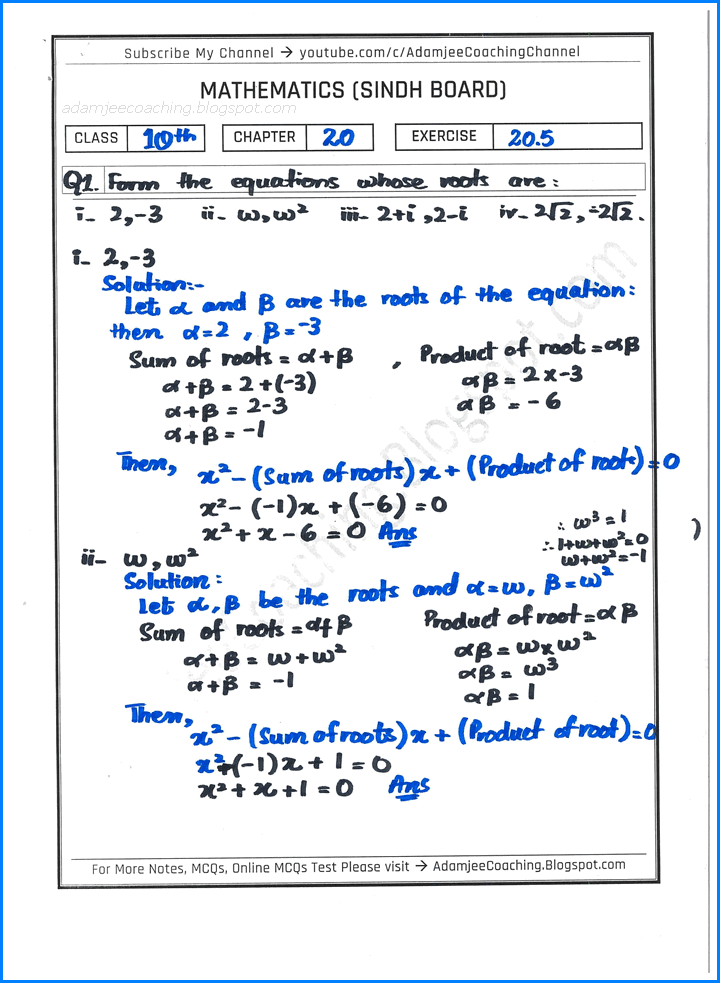 Subscribe My Channel → youtube.com/c/AdamjeeCoachingChannel
MATHEMATICS (SINDH BOARD)
adamjeecoaching.blogspot.com
CLASS 10th CHAPTER 20 EXERCISE 20.5
Q1. Form the equations whose roots are:
i- 2,-3 ii- ω,ω² iii- 2+i,2-i iv- 2√2,-2√2.
i- 2,-3
Solution:-
Let α and β are the roots of the equation:
then α=2, β=-3
Sum of roots = α+β , Product of root = αβ
α+β = 2+(-3) αβ = 2 x -3
α+β = 2-3 αβ = -6
α+β = -1
Then, x² - (Sum of roots)x + (Product of roots) = 0
x² - (-1)x + (-6) = 0
x² + x - 6 = 0 Ans
∴ ω³ = 1
∴ 1+ω+ω² = 0
ω+ω² = -1
)
ii- ω,ω²
Solution:
Let α,β be the roots and α=ω, β=ω²
Sum of roots = α+β Product of root = αβ
α+β = ω+ω² αβ = ω x ω²
α+β = -1 αβ = ω³
αβ = 1
Then,
x² - (Sum of roots)x + (Product of root) = 0
x² - (-1)x + 1 = 0
x² + x + 1 = 0 Ans
For More Notes, MCQs, Online MCQs Test Please visit → AdamjeeCoaching.Blogspot.com